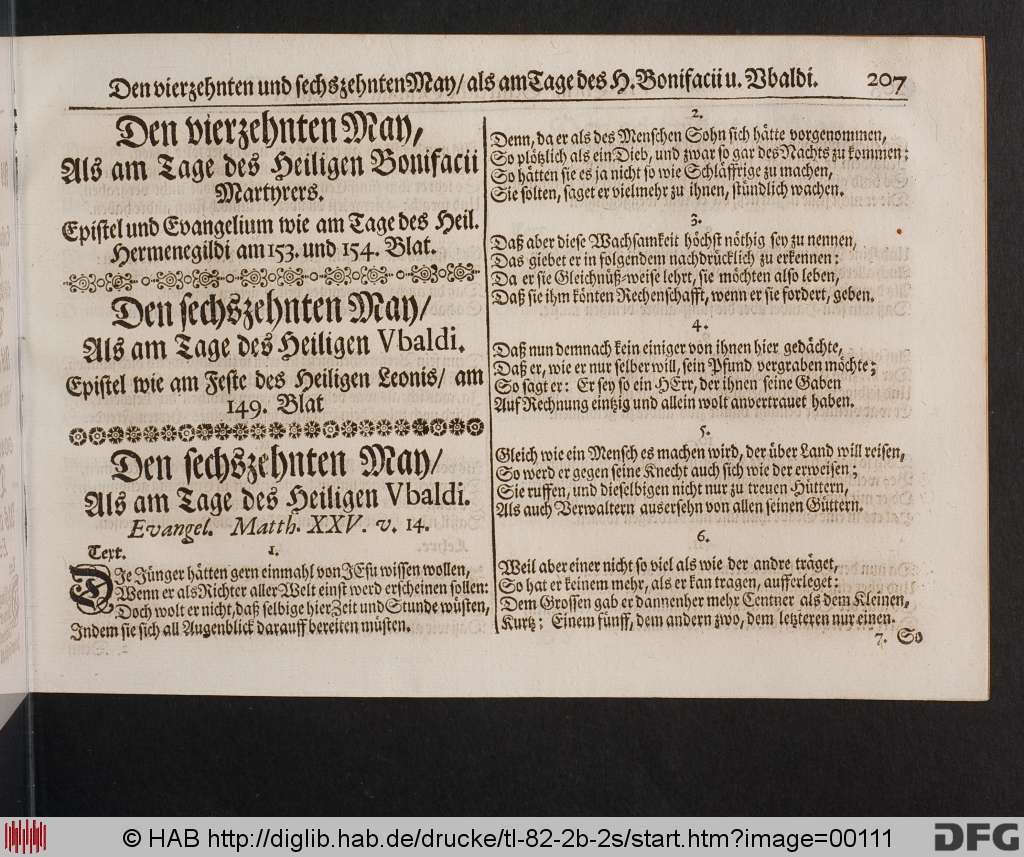 Den vierzehnten und sechszehnten May/ als am Tage des H. Bonifacii u. Vbaldi. 207
Den vierzehnten May/
Als am Tage des Heiligen Bonifacii
Martyrers.
Epistel und Evangelium wie am Tage des Heil.
Hermenegildi am 153. und 154. Blat.
Den sechszehnten May/
Als am Tage des Heiligen Vbaldi.
Epistel wie am Feste des Heiligen Leonis/ am
149. Blat
Den sechszehnten May/
Als am Tage des Heiligen Vbaldi.
Evangel. Matth. XXV. v. 14.
Text. 1.
DIe Jünger hätten gern einmahl von JEsu wissen wollen,
Wenn er als Richter aller Welt einst werd erscheinen sollen:
Doch wolt er nicht, daß selbige hier Zeit und Stunde wüsten,
Indem sie sich all Augenblick darauff bereiten müsten.
2.
Denn, da er als des Menschen Sohn sich hätte vorgenommen,
So plötzlich als ein Dieb, und zwar so gar des Nachts zu kommen;
So hätten sie es ja nicht so wie Schläffrige zu machen,
Sie solten, saget er vielmehr zu ihnen, stündlich wachen.
3.
Daß aber diese Wachsamkeit höchst nöthig sey zu nennen,
Das giebet er in folgendem nachdrücklich zu erkennen:
Da er sie Gleichnüß-weise lehrt, sie möchten also leben,
Daß sie ihm könten Rechenschafft, wenn er sie fordert, geben.
4.
Daß nun demnach kein einiger von ihnen hier gedächte,
Daß er, wie er nur selber will, sein Pfund vergraben möchte;
So sagt er: Er sey so ein HErr, der ihnen seine Gaben
Auf Rechnung eintzig und allein wolt anvertrauet haben.
5.
Gleich wie ein Mensch es machen wird, der über Land will reisen,
So werd er gegen seine Knecht auch sich wie der erweisen;
Sie ruffen, und dieselbigen nicht nur zu treuen Hüttern,
Als auch Verwaltern ausersehn von allen seinen Güttern.
6.
Weil aber einer nicht so viel als wie der andre träget,
So hat er keinem mehr, als er kan tragen, aufferleget:
Dem Grossen gab er dannenher mehr Centner als dem Kleinen,
Kurtz: Einem fünff, dem andern zwo, dem letzteren nur einen.
7. So
© HAB http://diglib.hab.de/drucke/tl-82-2b-2s/start.htm?image=00111
DFG